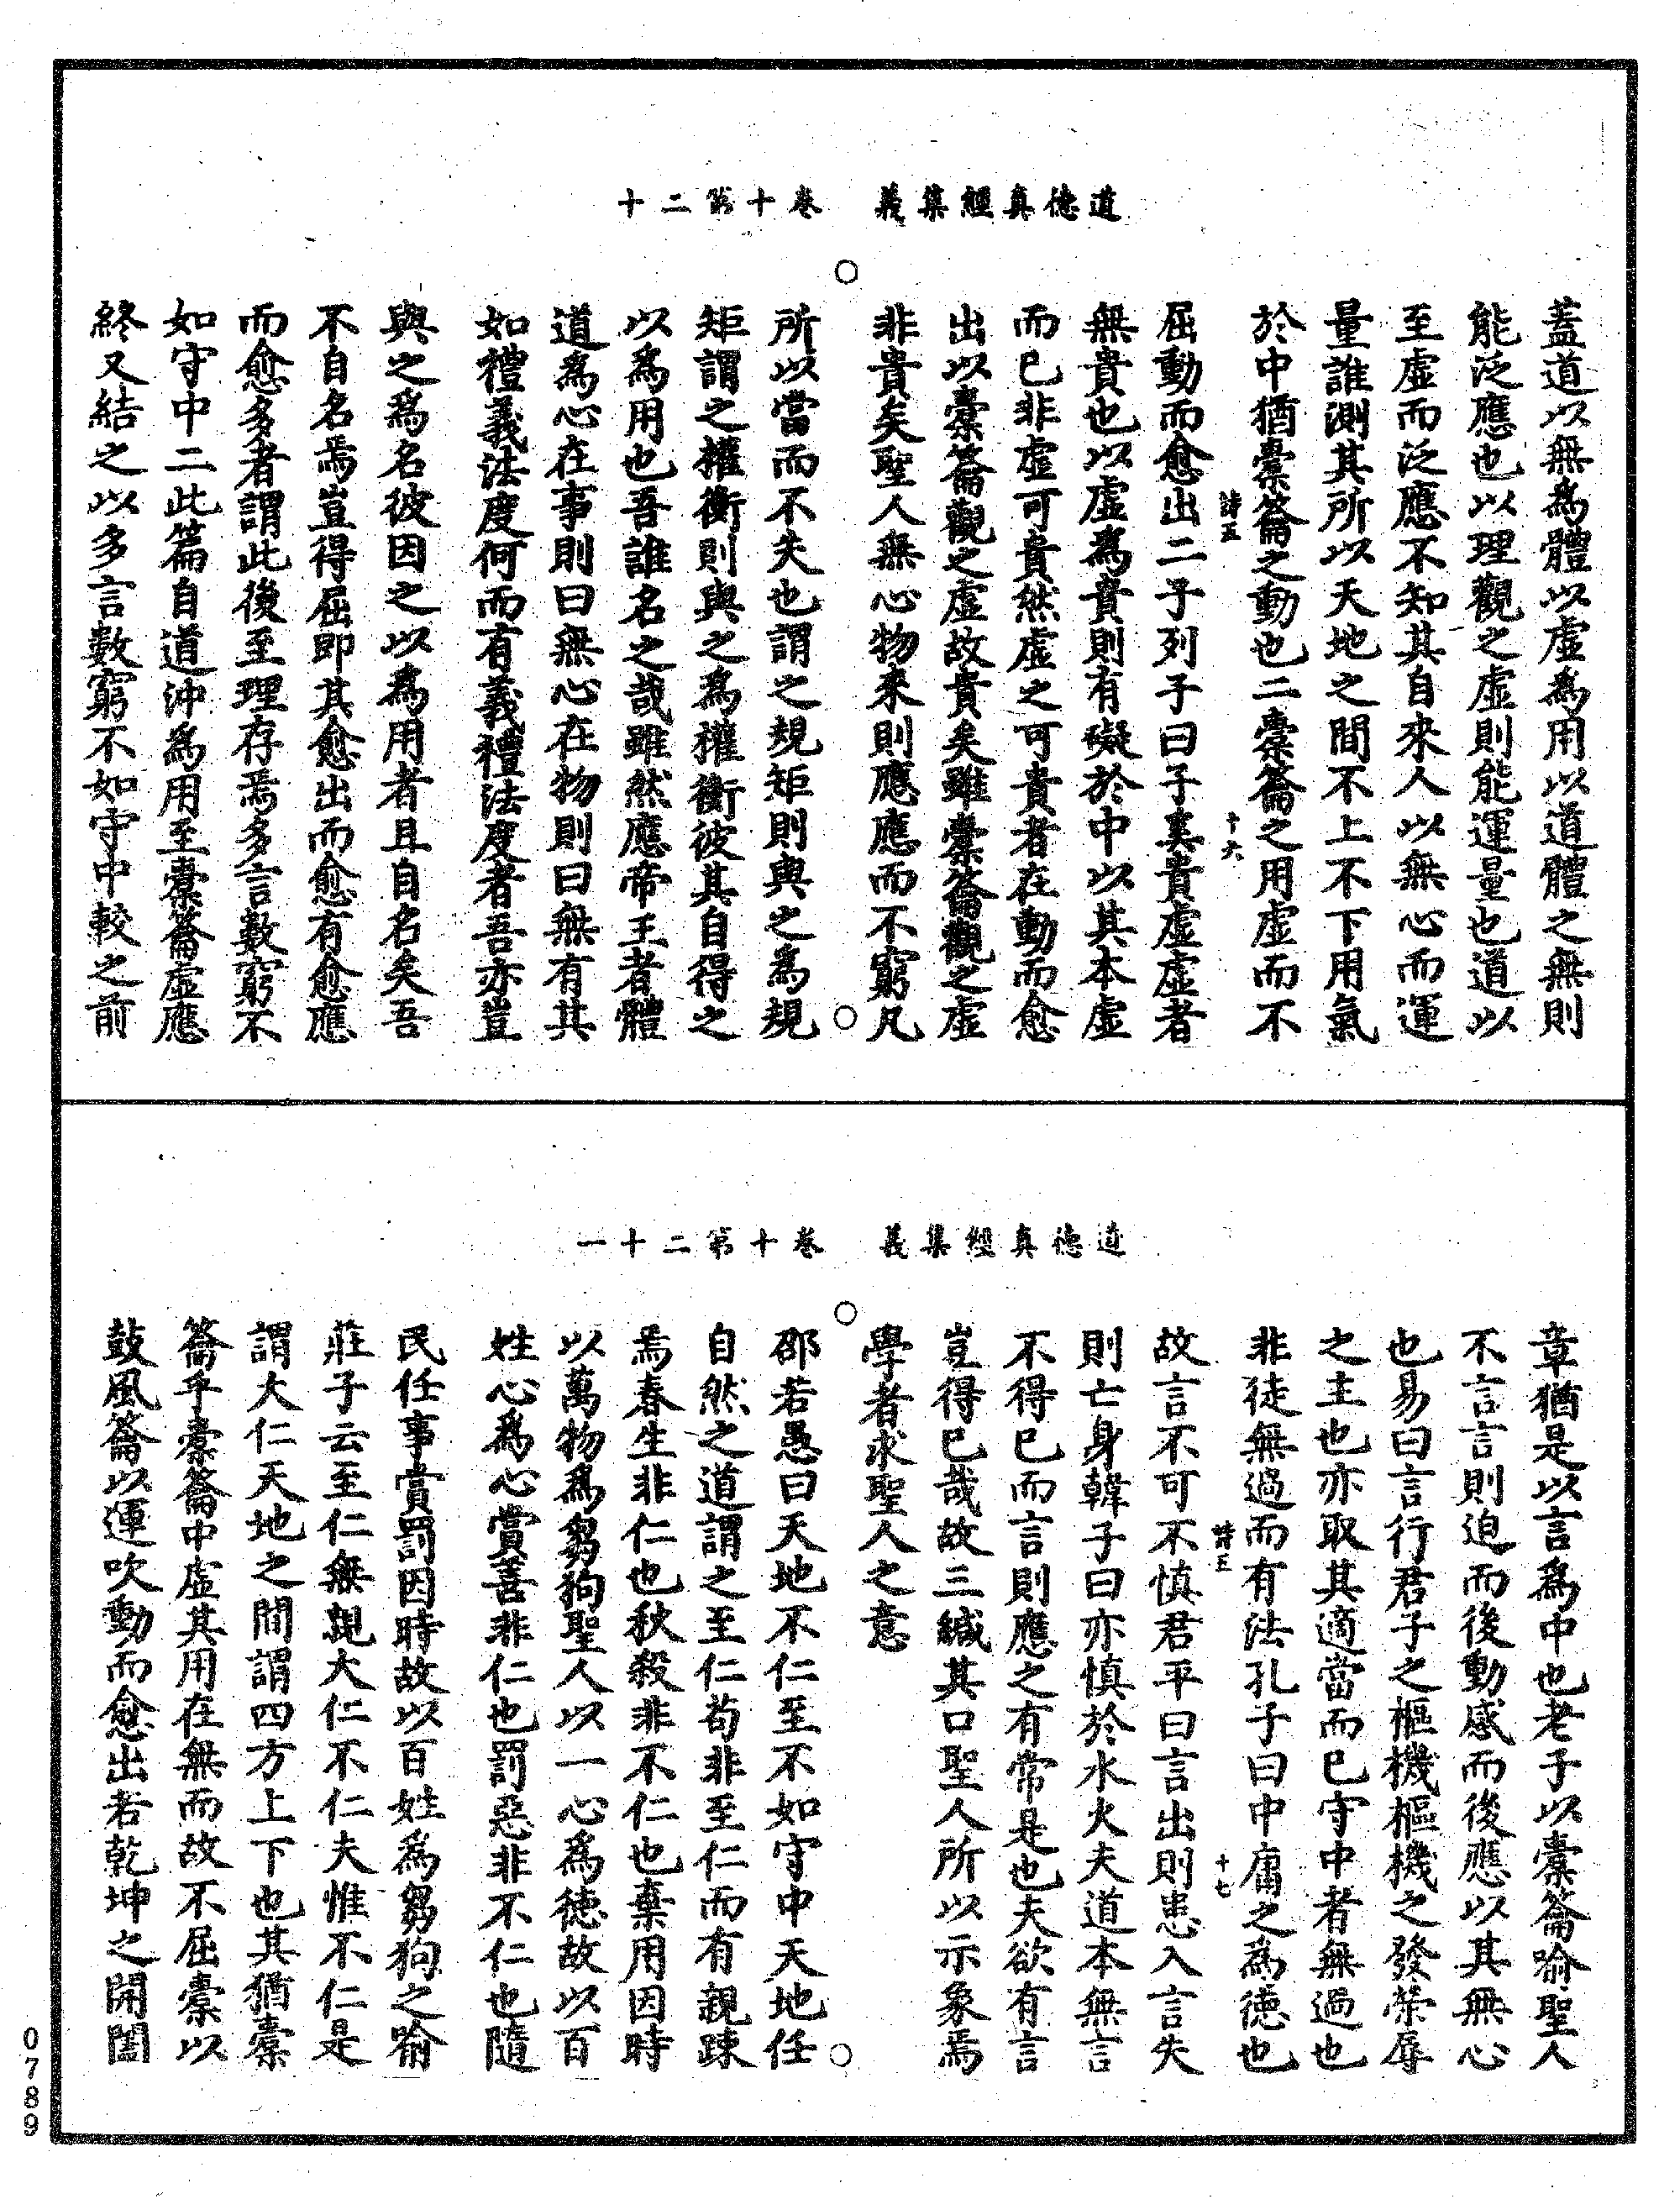 道德真經集義　卷十第二十
蓋道以無為體以虛為用以道體之無則
能泛應也以理觀之虛則能運量也道以
至虛而泛應不知其自來人以無心而運
量誰測其所以天地之間不上不下用氣
於中猶橐籥之動也二橐籥之用虛而不
詩五　十六
屈動而愈出二子列子曰子奚貴虛虛者
無貴也以虛為貴則有礙於中以其本虛
而已非虛可貴然虛之可貴者在動而愈
出以橐籥觀之虛故貴矣雖橐籥觀之虛
非貴矣聖人無心物來則應應而不窮凡
所以當而不失也謂之規矩則與之為規
矩謂之權衡則與之為權衡彼其自得之
以為用也吾誰名之哉雖然應帝王者體
道為心在事則曰無心在物則曰無有其
如禮義法度何而有義禮法度者吾亦豈
與之為名彼因之以為用者且自名矣吾
不自名焉豈得屈即其愈出而愈有愈應
而愈多者謂此後至理存焉多言數窮不
如守中二此篇自道沖為用至橐籥虛應
終又結之以多言數窮不如守中較之前
道德真經集義　卷十第二十一
章猶是以言為中也老子以橐籥喻聖人
不言言則迫而後動感而後應以其無心
也易曰言行君子之樞機樞機之發榮辱
之主也亦取其適當而已守中者無過也
非徒無過而有法孔子曰中庸之為德也
詩五　十七
故言不可不慎君平曰言出則患入言失
則亡身韓子曰亦慎於水火夫道本無言
不得已而言則應之有常是也夫欲有言
豈得已哉故三緘其口聖人所以示象焉
學者求聖人之意
邵若愚曰天地不仁至不如守中天地任
自然之道謂之至仁苟非至仁而有親疎
焉春生非仁也秋殺非不仁也棄用因時
以萬物為芻狗聖人以一心為德故以百
姓心為心賞善非仁也罰惡非不仁也隨
民任事賞罰因時故以百姓為芻狗之喻
莊子云至仁無親大仁不仁夫惟不仁是
謂大仁天地之間謂四方上下也其猶橐
籥乎橐籥中虛其用在無而故不屈橐以
鼓風籥以運吹動而愈出若乾坤之開闔
0789